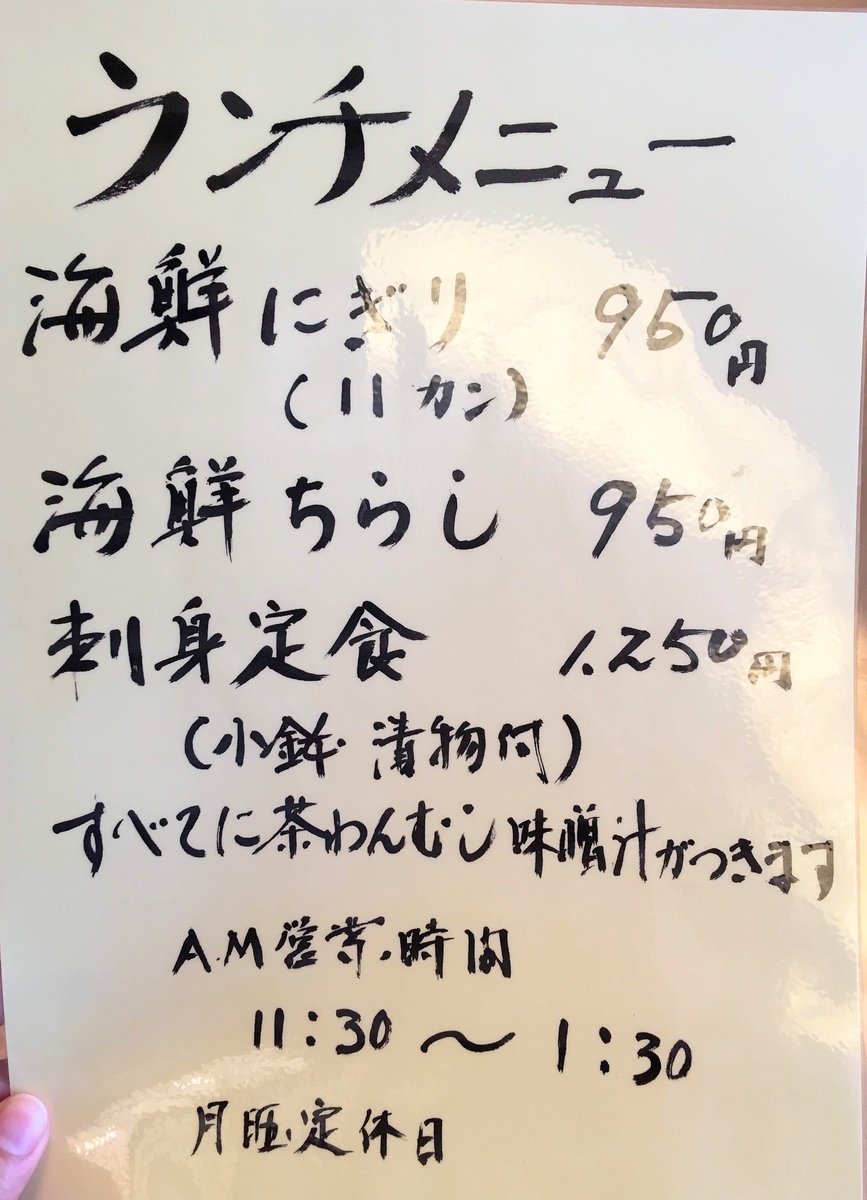 ランチメニュー
海鮮にぎり 950円
(11カン)
海鮮ちらし 950円
刺身定食 1.250円
(小鉢 漬物付)
すべてに茶わんむし味噌汁がつきます
A.M営業時間
11:30～1:30
月曜定休日